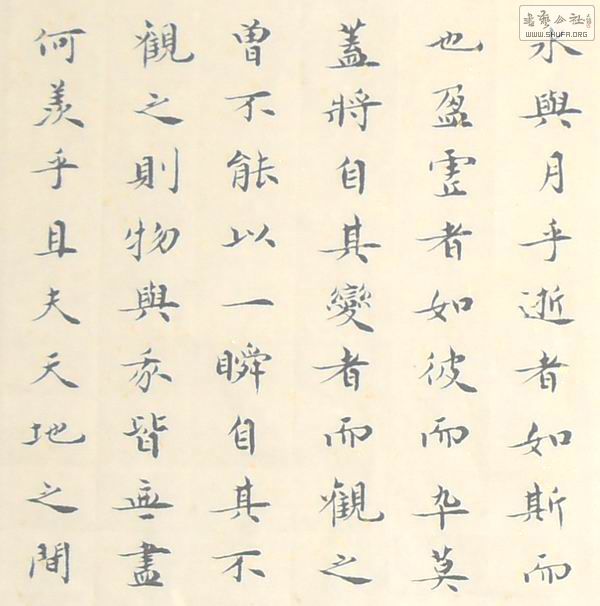 水與月乎逝者如斯而
也盈虛者如彼而卒莫
蓋將自其變者而觀之
曾不能以一瞬自其不
觀之則物與我皆無盡
何羨乎且夫天地之間
書藝公社
WWW.SHUFA.ORG